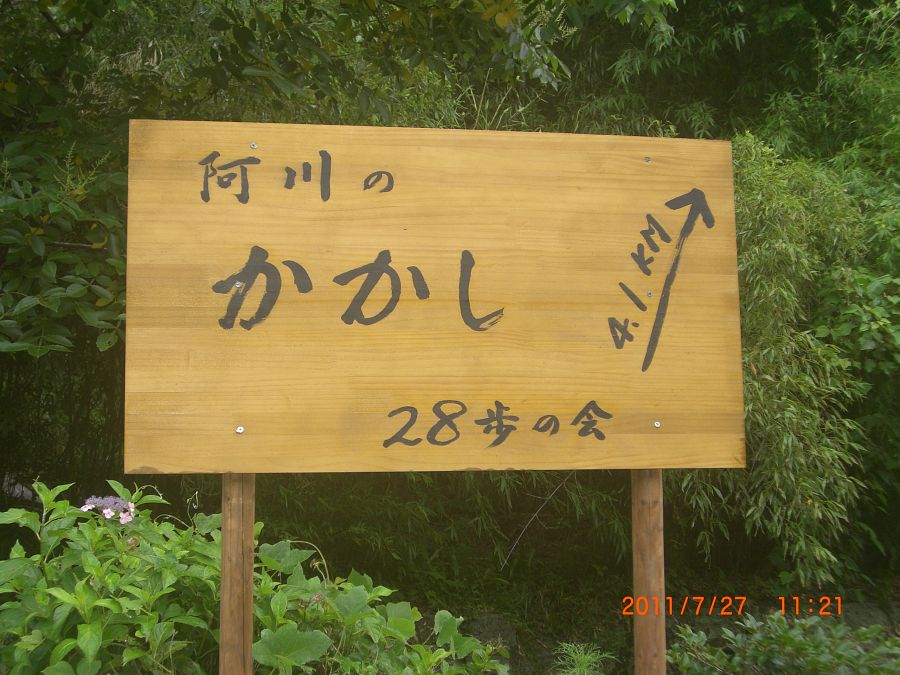 阿川の
かかし
4.1KM
28歩の会
2011/7/27 11:21